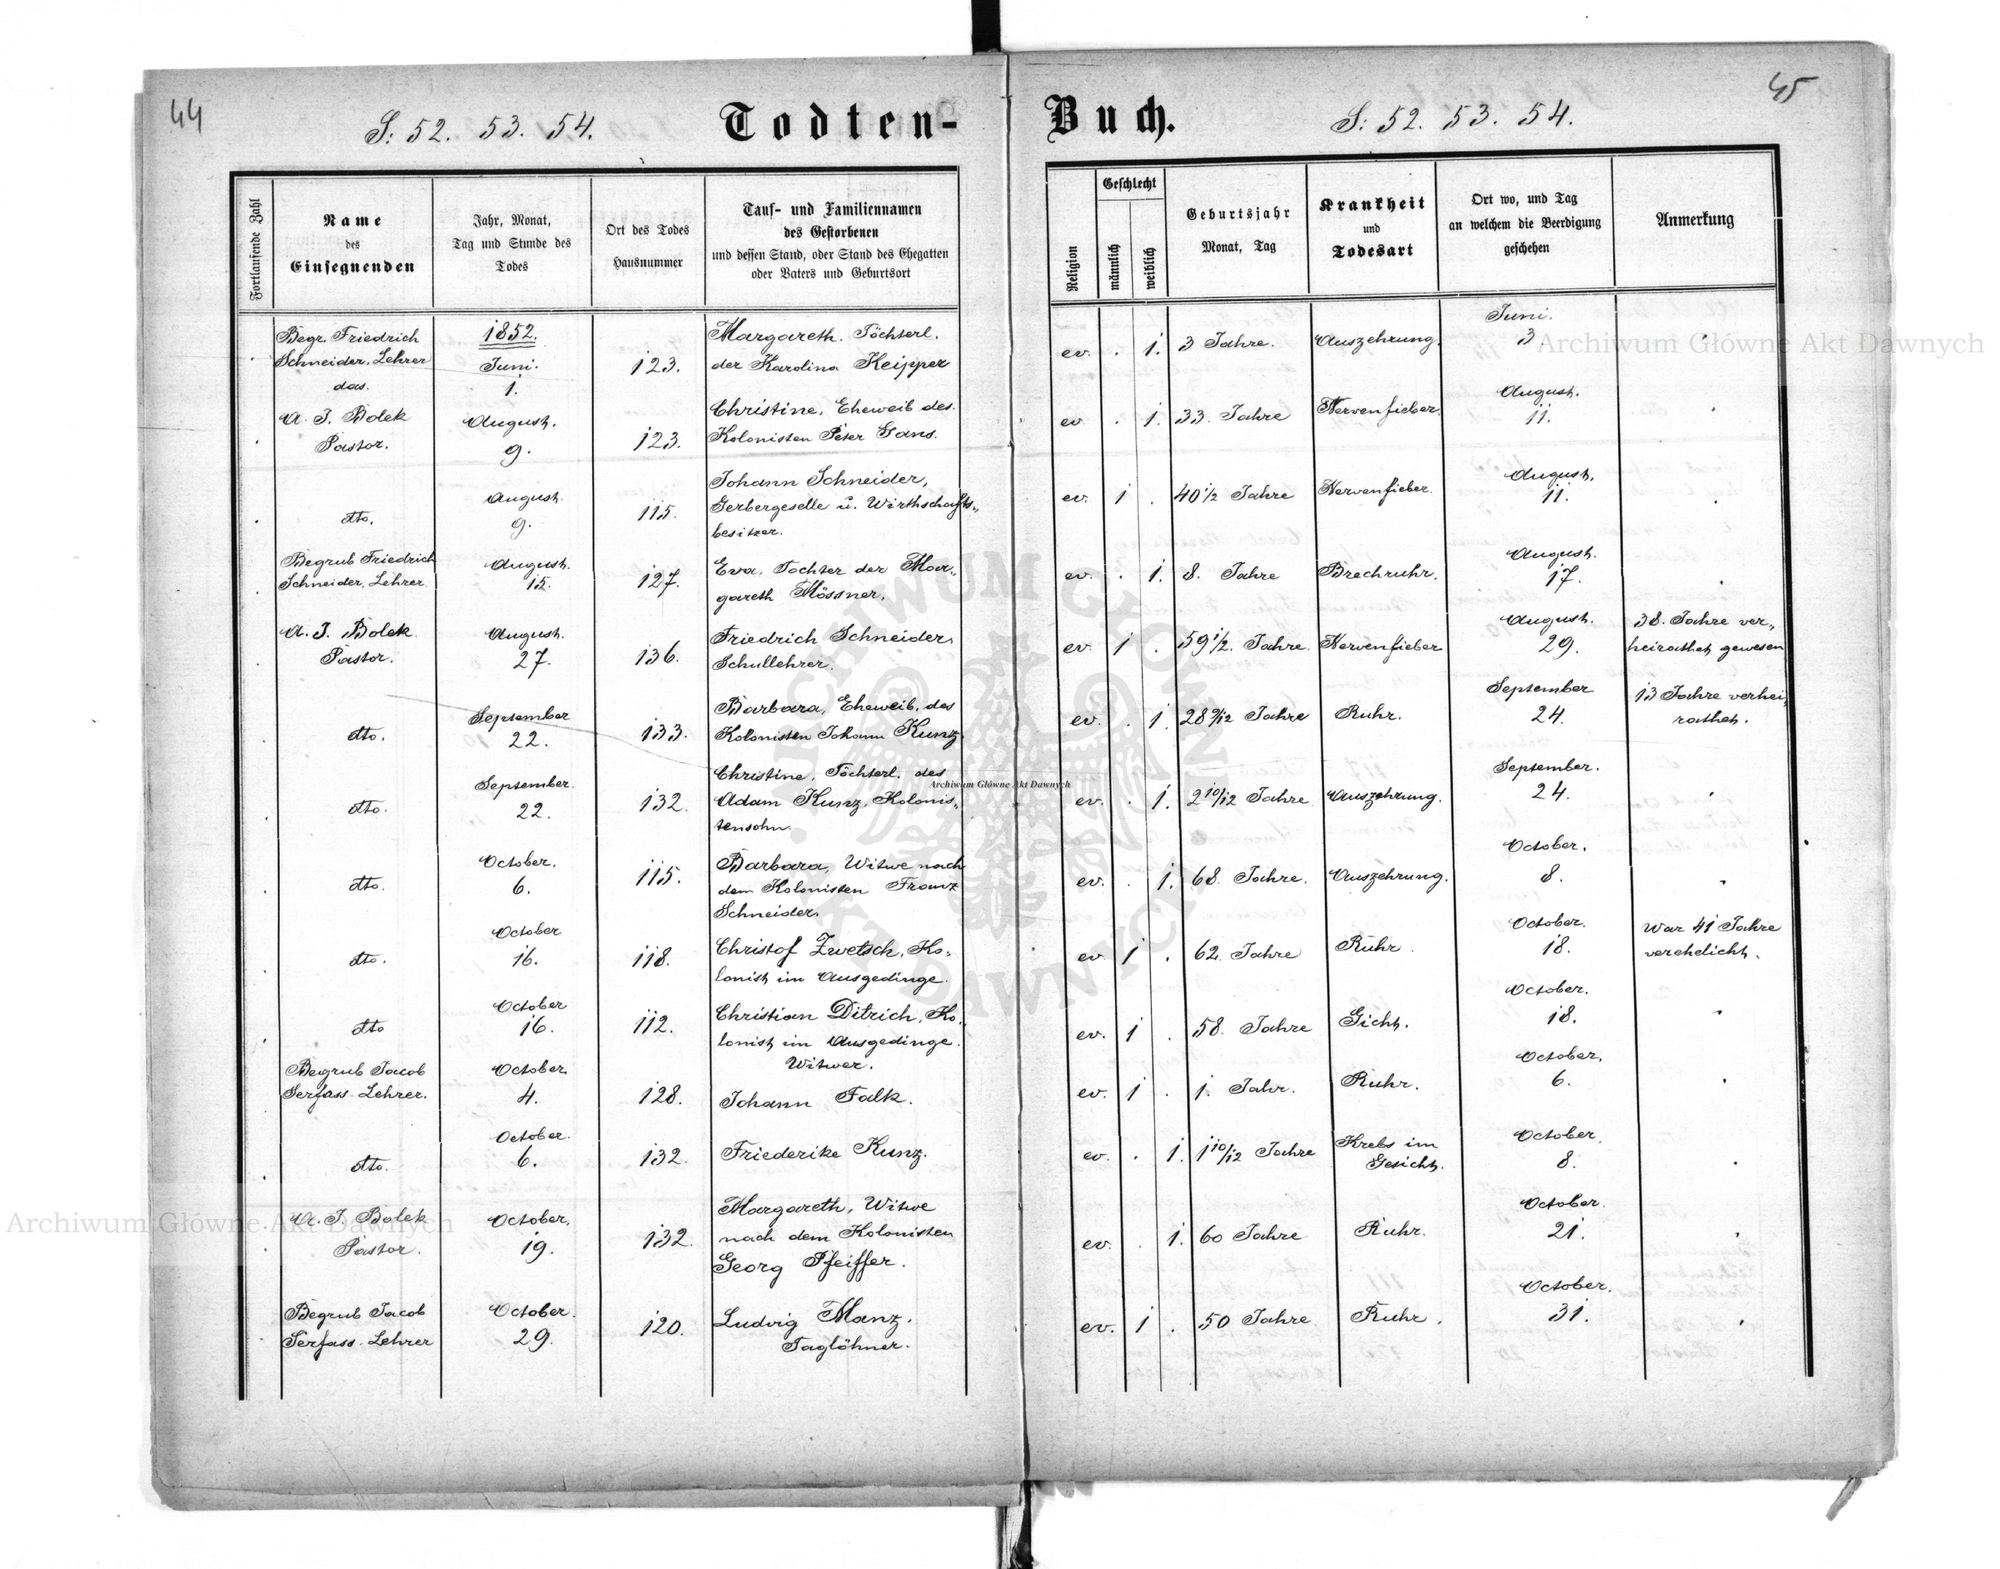 44
S: 52. 53. 54.
Todten-
Buch.
S: 52. 53. 54.
45
Fortlaufende Zahl
Name
des
Einsegnenden
Jahr, Monat,
Tag und Stunde des
Todes
Ort des Todes
Hausnummer
Tauf- und Familiennamen
des Gestorbenen
und dessen Stand, oder Stand des Ehegatten
oder Vaters und Geburtsort
Religion
Geschlecht
männlich
weiblich
Geburtsjahr
Monat, Tag
Krankheit
und
Todesart
Ort wo, und Tag
an welchem die Beerdigung
geschehen
Anmerkung
Begr. Friedrich
Schneider, Lehrer
das.
1852.
Juni.
1.
123.
Margareth. Töchterl.
der Karolina Keipper
ev. . 1. 3 Jahre. Auszehrung.
Juni.
3
A. J. Bolek
Pastor.
August.
9.
123.
Christine, Eheweib des
Kolonisten Peter Gans.
ev . 1. 33. Jahre Nervenfieber.
August.
11.
dto.
August.
9.
115.
Johann Schneider,
Gerbergeselle u. Wirthschafts-
besitzer.
ev. 1 . 40 1/2 Jahre Nervenfieber.
August.
11.
Begrub Friedrich
Schneider, Lehrer.
August.
15.
127.
Eva, Tochter der Mar-
gareth Mössner.
ev. . 1. 8. Jahre Brechruhr.
August.
17.
A. J. Bolek
Pastor.
August.
27.
136.
Friedrich Schneider,
Schullehrer.
ev. 1 . 59 1/2. Jahre. Nervenfieber
August.
29.
38. Jahre ver-
heirathet gewesen
dto.
September
22.
133.
Barbara, Eheweib des
Kolonisten Johann Kunz.
ev. . 1. 28 9/12 Jahre Ruhr.
September
24.
13 Jahre verhei-
rathet.
dto.
September.
22.
132.
Christine, Töchterl. des
Adam Kunz, Kolonis-
tensohn.
ev. . 1. 2 10/12 Jahre Auszehrung.
September.
24.
dto.
October.
6.
115.
Barbara, Witwe nach
dem Kolonisten Franz
Schneider.
ev. . 1. 68. Jahre. Auszehrung.
October.
8.
dto.
October
16.
118.
Christof Zwetsch, Ko-
lonist im Ausgedinge.
ev 1 . 62. Jahre Ruhr.
October.
18.
War 41 Jahre
verehelicht.
dto
October
16.
112.
Christian Ditrich, Ko-
lonist im Ausgedinge.
Witwer.
ev. 1 . 58. Jahre Gicht.
October.
18.
Begrub Jacob
Serfass Lehrer.
October
4.
128.
Johann Falk.
ev. 1 . 1. Jahr. Ruhr.
October.
6.
dto.
October.
6.
132.
Friederike Kunz.
ev. . 1. 1 10/12 Jahre Krebs im
Gesicht.
October.
8.
A. J. Bolek
Pastor.
October.
19.
132.
Margareth, Witwe
nach dem Kolonisten
Georg Pfeiffer.
ev. . 1. 60 Jahre Ruhr.
October.
21.
Begrub Jacob
Serfass Lehrer
October.
29.
120.
Ludvig Manz,
Taglöhner.
ev. 1 . 50 Jahre Ruhr.
October.
31.
Archiwum Główne Akt Dawnych
Archiwum Główne Akt Dawnych
Archiwum Główne Akt Dawnych
ARCHIWUM GŁÓWNE AKT DAWNYCH